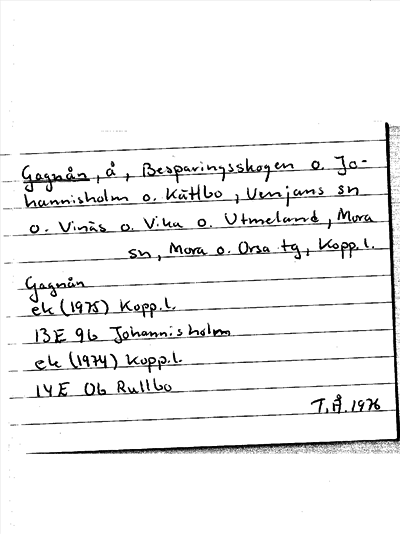 Gagnån, å, Besparingsskogen o. Jo-
hannisholm o. Kättbo, Venjans sn
o. Vinäs o. Vika o. Utmeland, Mora
sn, Mora o. Orsa tg, Kopp.l.
Gagnån
ek (1975) Kopp.l.
13E 9b Johannisholm
ek (1974) Kopp.l.
14E 0b Rullbo
T.Å. 1976